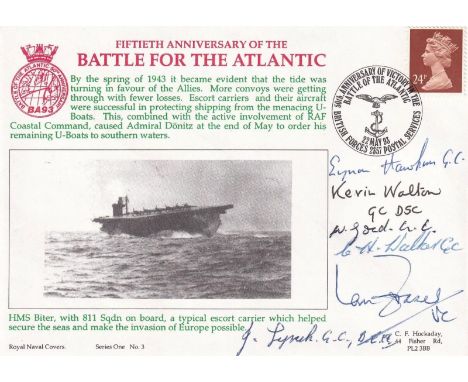 FIFTIETH ANNIVERSARY OF THE
BATTLE FOR THE ATLANTIC
By the spring of 1943 it became evident that the tide was
turning in favour of the Allies. More convoys were getting
through with fewer losses. Escort carriers and their aircraft
were successful in protecting shipping from the menacing U-
Boats. This, combined with the active involvement of RAF
Coastal Command, caused Admiral Dönitz at the end of May to order his
remaining U-Boats to southern waters.
BA93
24P
50th ANNIVERSARY OF VICTORY IN THE
BATTLE OF THE ATLANTIC
22 MAY 93
BRITISH FORCES 2357 POSTAL SERVICES
Eynon Hawkins G.C.
Kevin Walton
GC DSC
G.C.
C H Walker GC
Ian Fraser
VC
J. Lynch. G.C.,
HMS Biter, with 811 Sqdn on board, a typical escort carrier which helped
secure the seas and make the invasion of Europe possible.
Royal Naval Covers. Series One No. 3
C. F. Hockaday,
44 Fisher Rd,
PL2 3BB